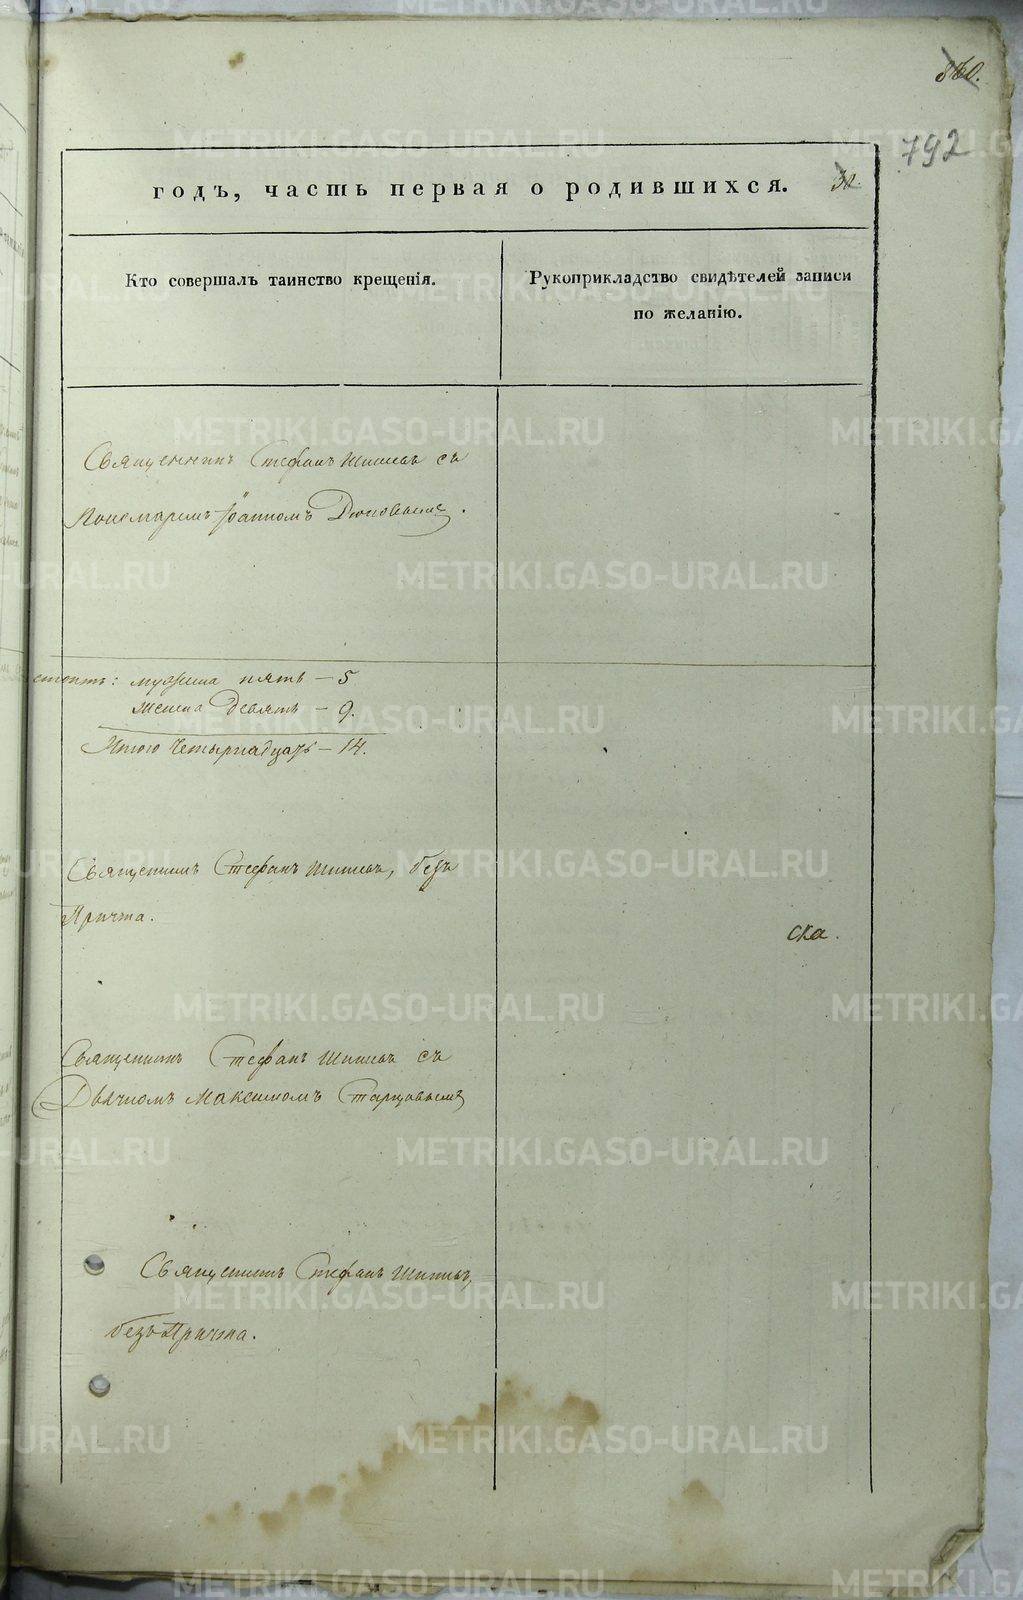 860.
792
годъ, часть первая о родившихся.
Кто совершалъ таинство крещенія.
Рукоприкладство свидѣтелей записи
по желанію.
Священникъ Стефанъ Шишевъ съ
Пономаремъ Іоанномъ
мужска пять - 5
женска девять - 9.
Итого четырнадцать - 14.
Священникъ Стефанъ Шишевъ, безъ
Причта.
ска.
Священникъ Стефанъ Шишевъ съ
Дьячкомъ Максимомъ Старцовымъ
Священникъ Стефанъ Шишевъ,
безъ Причта.
METRIKI.GASO-URAL.RU